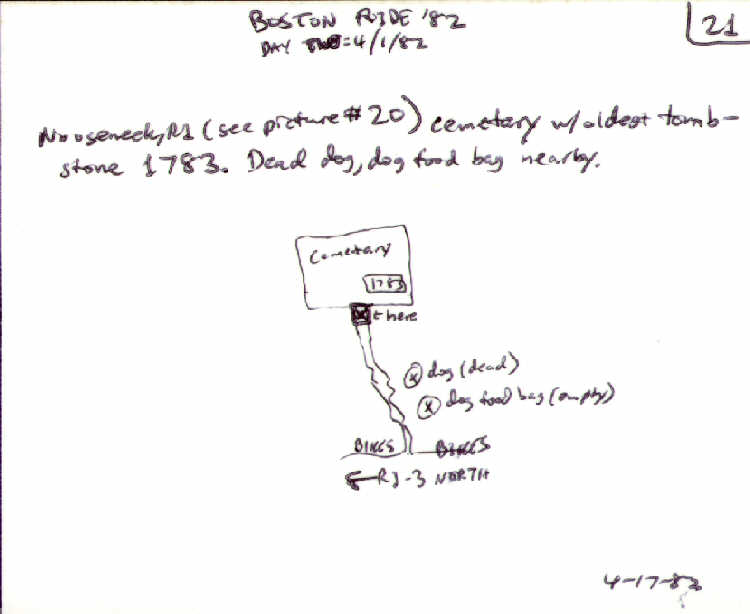 BOSTON RIDE '82
21
DAY TWO=4/1/82
Nooseneck, RI (see picture #20) cemetary w/oldest tomb-
stone 1783. Dead dog, dog food bag nearby.
Cemetary
1783
there
dog (dead)
dog food bag (empty)
BIKES BIKES
RI-3 NORTH
4-17-82